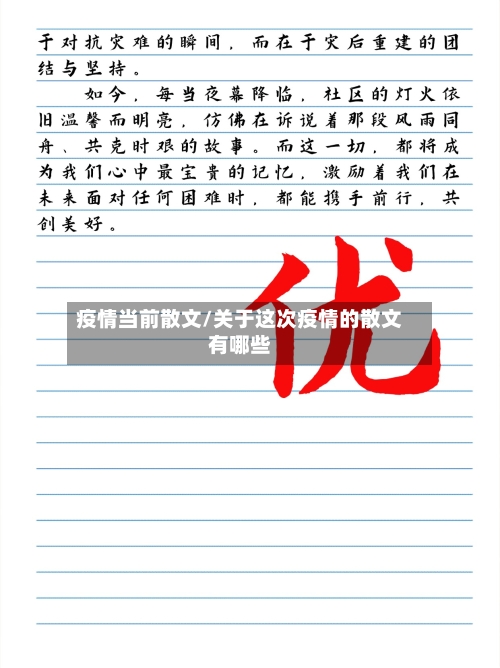 于对抗灾难的瞬间，而在于灾后重建的团
结与坚持。
如今，每当夜幕降临，社区的灯火依
旧温馨而明亮，仿佛在诉说着那段风雨同
舟、共克时艰的故事。而这一切，都将成
为我们心中最宝贵的记忆，激励着我们在
未来面对任何困难时，都能携手前行，共
创美好。
优
疫情当前散文/关于这次疫情的散文
有哪些